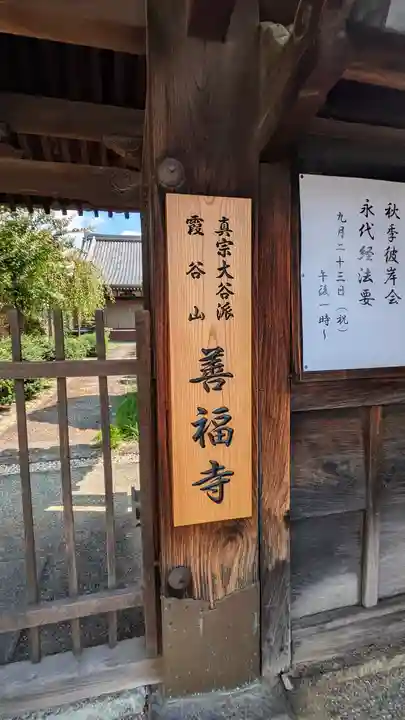 秋季彼岸会
永代経法要
九月二十三日（祝）
午後一時～
真宗大谷派
霞谷山
善福寺